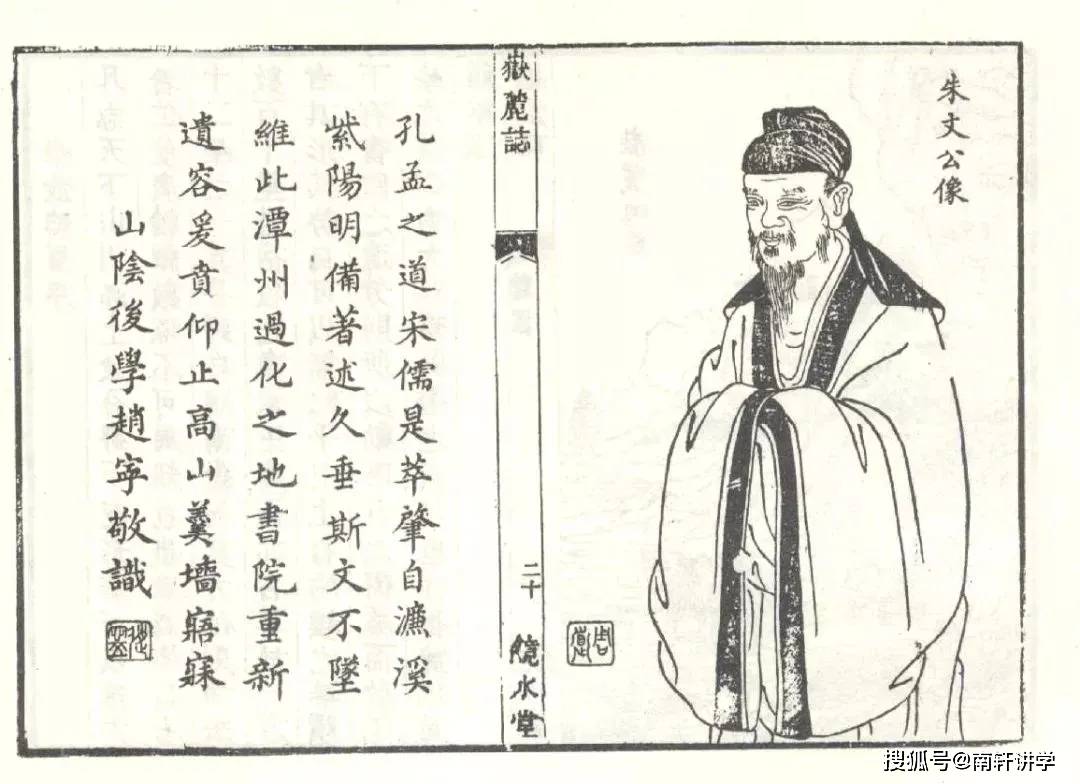 朱文公像
嶽麓誌
二十
鏡水堂
孔孟之道宋儒是萃肇自濂溪
紫陽明備著述久垂斯文不墜
維此潭州過化之地書院重新
遺容爰賁仰止高山羹墻寤寐
山陰後學趙寧敬識
搜狐号@南轩讲学